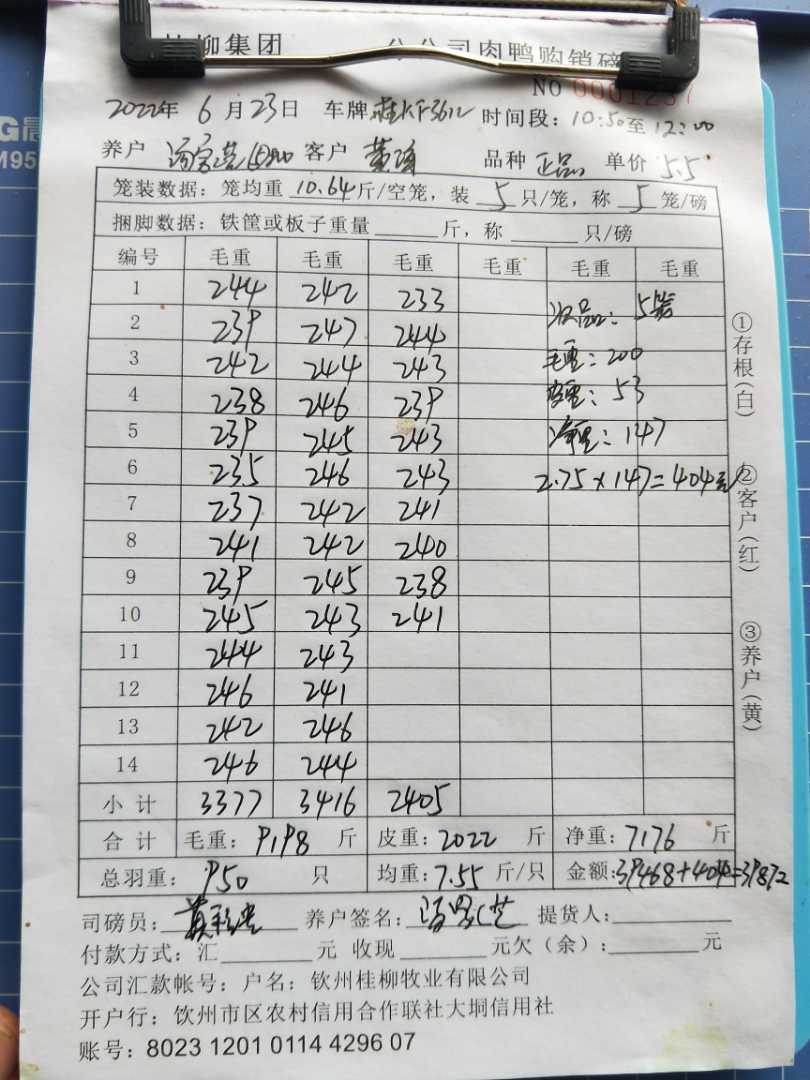 柳集团 分公司肉鸭购销磅
NO 0001237
2022年 6月23日 车牌 时间段：10:50至12:00
养户 客户 黄 品种 正品 单价 5.5
笼装数据：笼均重 10.64斤/空笼，装 5 只/笼，称 5 笼/磅
捆脚数据：铁筐或板子重量 斤，称 只/磅
编号 毛重 毛重 毛重 毛重 毛重 毛重
1 244 242 233 次品：5笼
2 239 247 244
3 242 244 243 毛重：200
4 238 246 239 皮重：53
5 239 245 243 净重：147
6 235 246 243 2.75×147=404元
7 237 242 241
8 241 242 240
9 239 245 238
10 245 243 241
11 244 243
12 246 241
13 242 246
14 246 244
小计 3377 3416 2405
合计 毛重：9198 斤 皮重：2022 斤 净重：7176 斤
总羽重：950 只 均重：7.55 斤/只 金额：39468+404=39872
司磅员： 养户签名： 提货人：
付款方式：汇 元 收现 元欠（余）： 元
公司汇款帐号：户名：钦州桂柳牧业有限公司
开户行：钦州市区农村信用合作联社大垌信用社
账号：8023 1201 0114 4296 07
①存根（白）
②客户（红）
③养户（黄）